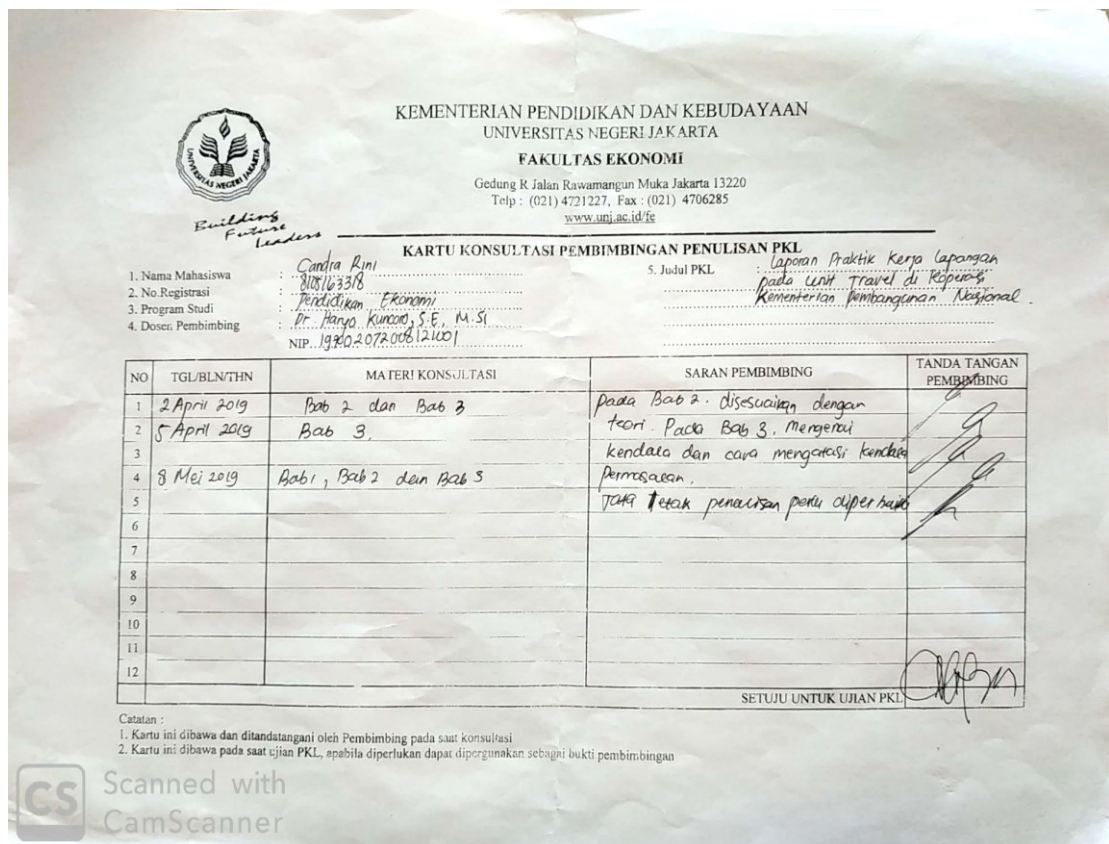 KEMENTERIAN PENDIDIKAN DAN KEBUDAYAAN
UNIVERSITAS NEGERI JAKARTA
FAKULTAS EKONOMI
Gedung R Jalan Rawamangun Muka Jakarta 13220
Telp : (021) 4721227, Fax : (021) 4706285
www.unj.ac.id/fe
UNIVERSITAS NEGERI JAKARTA
Building
Future
Leaders
KARTU KONSULTASI PEMBIMBINGAN PENULISAN PKL
1. Nama Mahasiswa : Candra Rini
2. No.Registrasi : 8105163318
3. Program Studi : Pendidikan Ekonomi
4. Dosen Pembimbing : Dr. Haryo Kuncoro, S.E, M.Si
NIP. 197002072008121001
5. Judul PKL : Laporan Praktik Kerja Lapangan
pada Unit Travel di Koperasi
Kementerian Pembangunan Nasional.
NO TGL/BLN/THN MATERI KONSULTASI SARAN PEMBIMBING TANDA TANGAN PEMBIMBING
1 2 April 2019 Bab 2 dan Bab 3 pada Bab 2. disesuaikan dengan
2 5 April 2019 Bab 3. teori. Pada Bab 3. Mengenai
3 kendala dan cara mengatasi kendala
4 8 Mei 2019 Bab 1, Bab 2 dan Bab 3 Permasalan.
5 Tata letak penulisan perlu diperbaiki
6
7
8
9
10
11
12
SETUJU UNTUK UJIAN PKL
Catatan :
1. Kartu ini dibawa dan ditandatangani oleh Pembimbing pada saat konsultasi
2. Kartu ini dibawa pada saat ujian PKL, apabila diperlukan dapat dipergunakan sebagai bukti pembimbingan
CS Scanned with
CamScanner